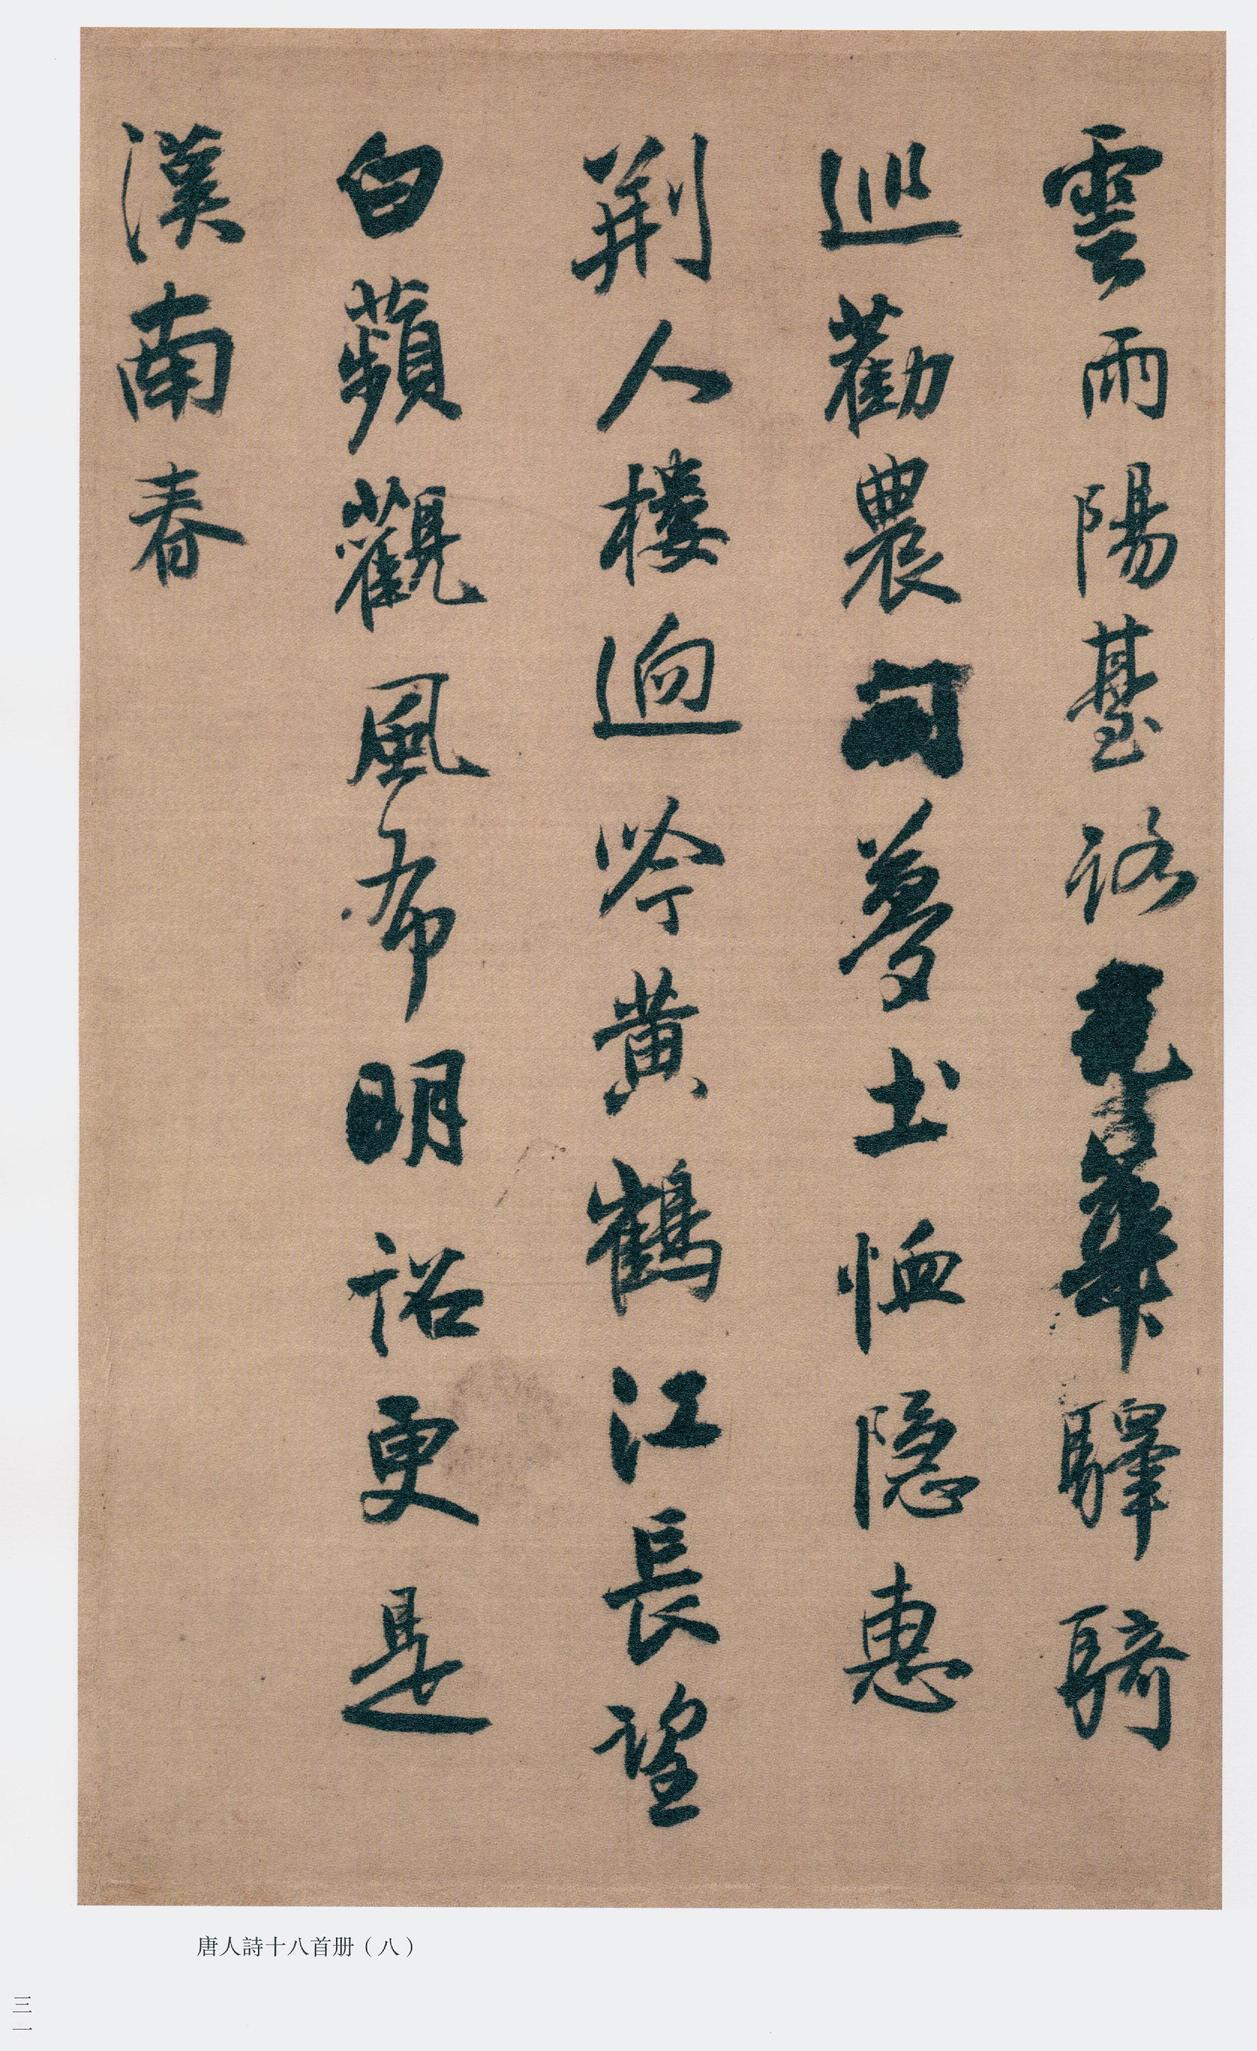 雲雨陽臺路光華驛騎
巡勸農夢土恤隐惠
荆人楼逈吟黄鶴江長望
白蘋觀風布明詔更是
漢南春
唐人詩十八首册（八）
三一